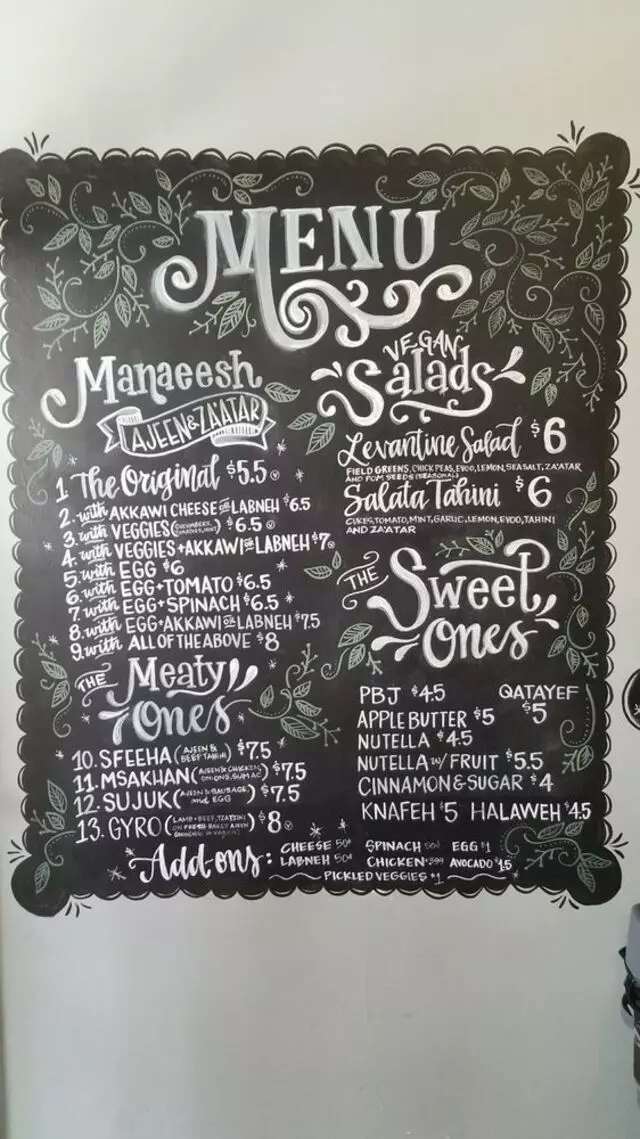 MENU
Manaeesh
AJEEN & ZAATAR
1. The Original $5.5 Ⓥ
2. with AKKAWI CHEESE OR LABNEH $6.5
3. with VEGGIES (CUCUMBERS, TOMATOES, MINT) $6.5 Ⓥ
4. with VEGGIES+AKKAWI OR LABNEH $7
5. with EGG $6
6. with EGG+TOMATO $6.5
7. with EGG+SPINACH $6.5
8. with EGG+AKKAWI OR LABNEH $7.5
9. with ALL OF THE ABOVE $8
THE Meaty Ones
10. SFEEHA (AJEEN & BEEF TAHINI) $7.5
11. MSAKHAN (AJEEN & CHICKEN, ONIONS, SUMAC) $7.5
12. SUJUK (AJEEN & SAUSAGE and EGG) $7.5
13. GYRO (LAMB+BEEF, TZATZIKI ON FRESH BAKED AJEEN) $8 Ⓥ
VEGAN
Salads
Levantine Salad $6
FIELD GREENS, CHICK PEAS, EVOO, LEMON, SEA SALT, ZA'ATAR
AND POM SEEDS (SEASONAL)
Salata Tahini $6
CUKES, TOMATO, MINT, GARLIC, LEMON, EVOO, TAHINI
AND ZA'ATAR
THE Sweet
Ones
PBJ $4.5 QATAYEF $5
APPLE BUTTER $5
NUTELLA $4.5
NUTELLA W/ FRUIT $5.5
CINNAMON & SUGAR $4
KNAFEH $5 HALAWEH $4.5
Add-ons: CHEESE 50¢ SPINACH 50¢ EGG $1
LABNEH 50¢ CHICKEN $3.99 AVOCADO $1.5
PICKLED VEGGIES $1